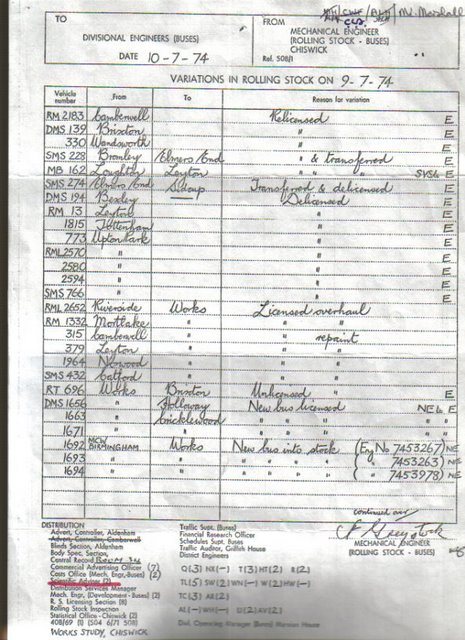 M. Marshall
TO
DIVISIONAL ENGINEERS (BUSES)
DATE 10-7-74
FROM
MECHANICAL ENGINEER
(ROLLING STOCK - BUSES)
CHISWICK
Ref. 508/1
VARIATIONS IN ROLLING STOCK ON 9-7-74
Vehicle number From To Reason for variation
RM 2183 Camberwell Relicensed E
DMS 139 Brixton " E
330 Wandsworth " E
SMS 228 Bromley Elmers End " & transferred E
MB 162 Loughton Leyton " " " SVS6 E
SMS 274 Elmers End Sidcup Transferred & delicensed E
DMS 194 Bexley — Delicensed E
RM 13 Leyton " E
1815 Tottenham " E
773 Upton Park " E
RML 2570 " " E
2580 " " E
2594 " " E
SMS 766 " " E
RML 2652 Riverside Works Licensed overhaul
RM 1332 Mortlake " " "
315 Camberwell " " repaint
379 Leyton " " "
1964 Norwood " " "
SMS 432 Catford " " "
RT 696 Works Brixton Unlicensed E
DMS 1656 " Holloway New bus licensed NE6 E
1663 " Cricklewood " " " " "
1671 " " " " " " "
1692 MCW BIRMINGHAM Works New bus into stock (Eng No 7453267) NE
1693 " " " " " " ( " 7453263) NE
1694 " " " " " " ( " 7453978) NE
continued over
MECHANICAL ENGINEER
(ROLLING STOCK - BUSES)
DISTRIBUTION
Advert, Controller, Aldenham
Advert, Controller, Camberwell
Blinds Section, Aldenham
Body Spec, Section,
Central Record
Commercial Advertising Officer (7)
Costs Office (Mech. Engr. Buses) (2)
Scientific Adviser (2)
Distribution Services Manager
Mech. Engr. (Development) (2)
R. S. Licensing Section (8)
Rolling Stock Inspection
Statistical Office - Chiswick (2)
408/69 (1) (504 6/71 508)
WORKS STUDY, CHISWICK
Traffic Supt. (Buses)
Financial Research Officer
Schedules Supt. Buses
Traffic Auditor, Griffith House
District Engineers
Q(3) NX(-) T(3) HT(2) R(2)
TL(5) SW(2) WN(-) W(2) HW(-)
TC(3) AR(2)
AL(-) WH(-) U(2) AV(2)
Div. Operating Manager (Buses) Mansion House